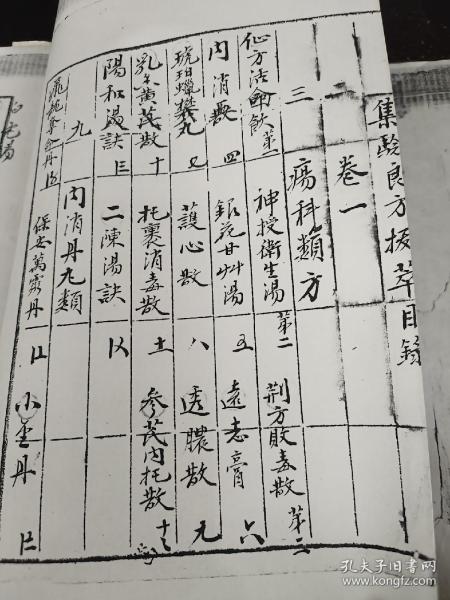 集驗良方拔萃目錄
卷一
瘍科類方
三
仙方活命飲 第一 神授衛生湯 第二 荆防敗毒散 第三
內消散 四 銀花甘艸湯 五 遠志膏 六
琥珀蠟礬丸 七 護心散 八 透膿散 九
乳黃茋散 十 托裏消毒散 十一 參芪內托散 十二
陽和湯訣 十三 二陳湯訣
九 內消丹丸類
奪命丹 保安萬靈丹 小金丹
孔夫子旧书网
www.kongfz.com